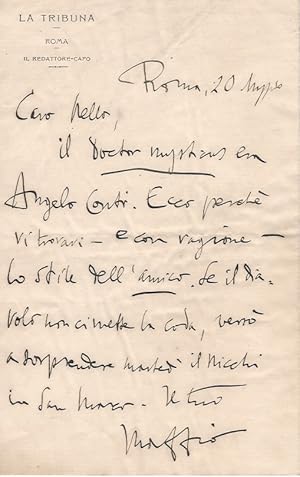 LA TRIBUNA
ROMA
IL REDATTORE-CAPO
Roma, 20
Caro Nello,
il Doctor mysticus era
Angelo Conti. Ecco perchè
vi trovavi – e con ragione –
lo stile dell'amico. Se il dia-
volo non ci mette la coda, verrò
a sorprendere martedì il Nicchi
in San Marco – Il tuo
Maffio